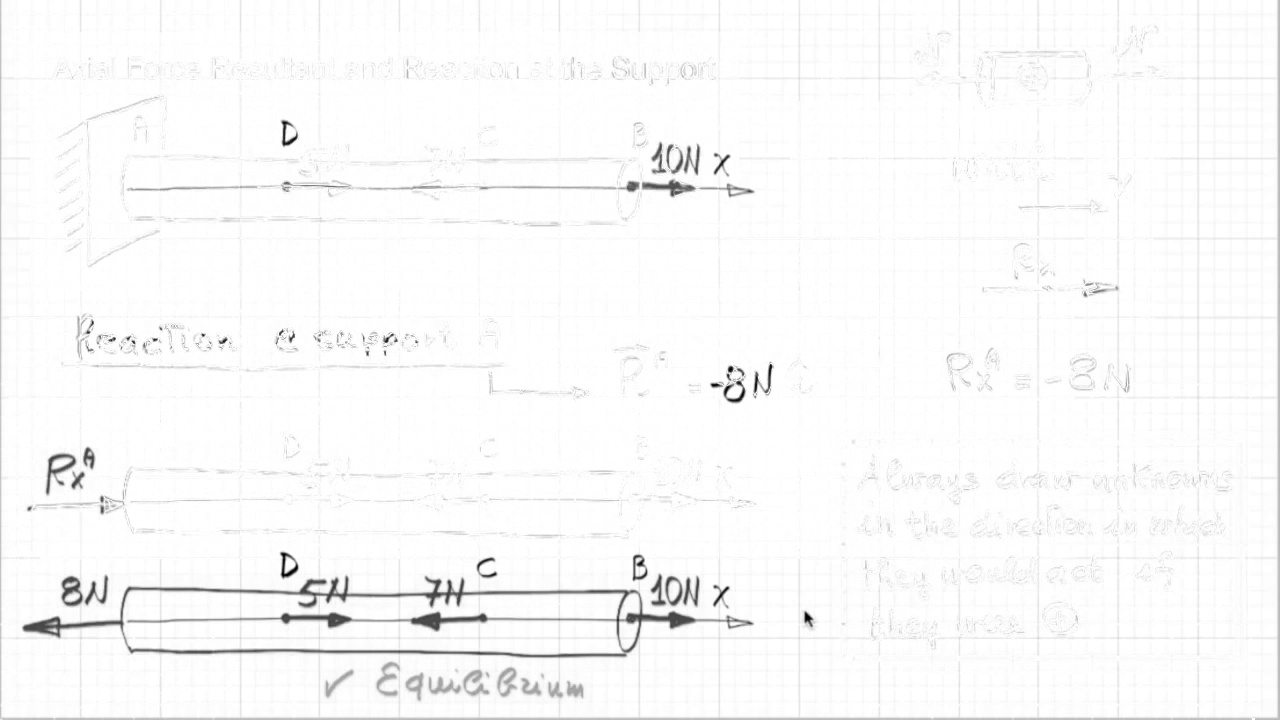 Axial Force Resultant and Reaction at the Support
A D 5N 7N C B 10N x
Reaction @ support A
= -8N
Rx^A = -8N
Rx
Rx^A D 5N 7N C B 10N x
Always draw unknowns
in the direction in which
they would act if
they were ⊕
8N D 5N 7N C B 10N x
✓ Equilibrium